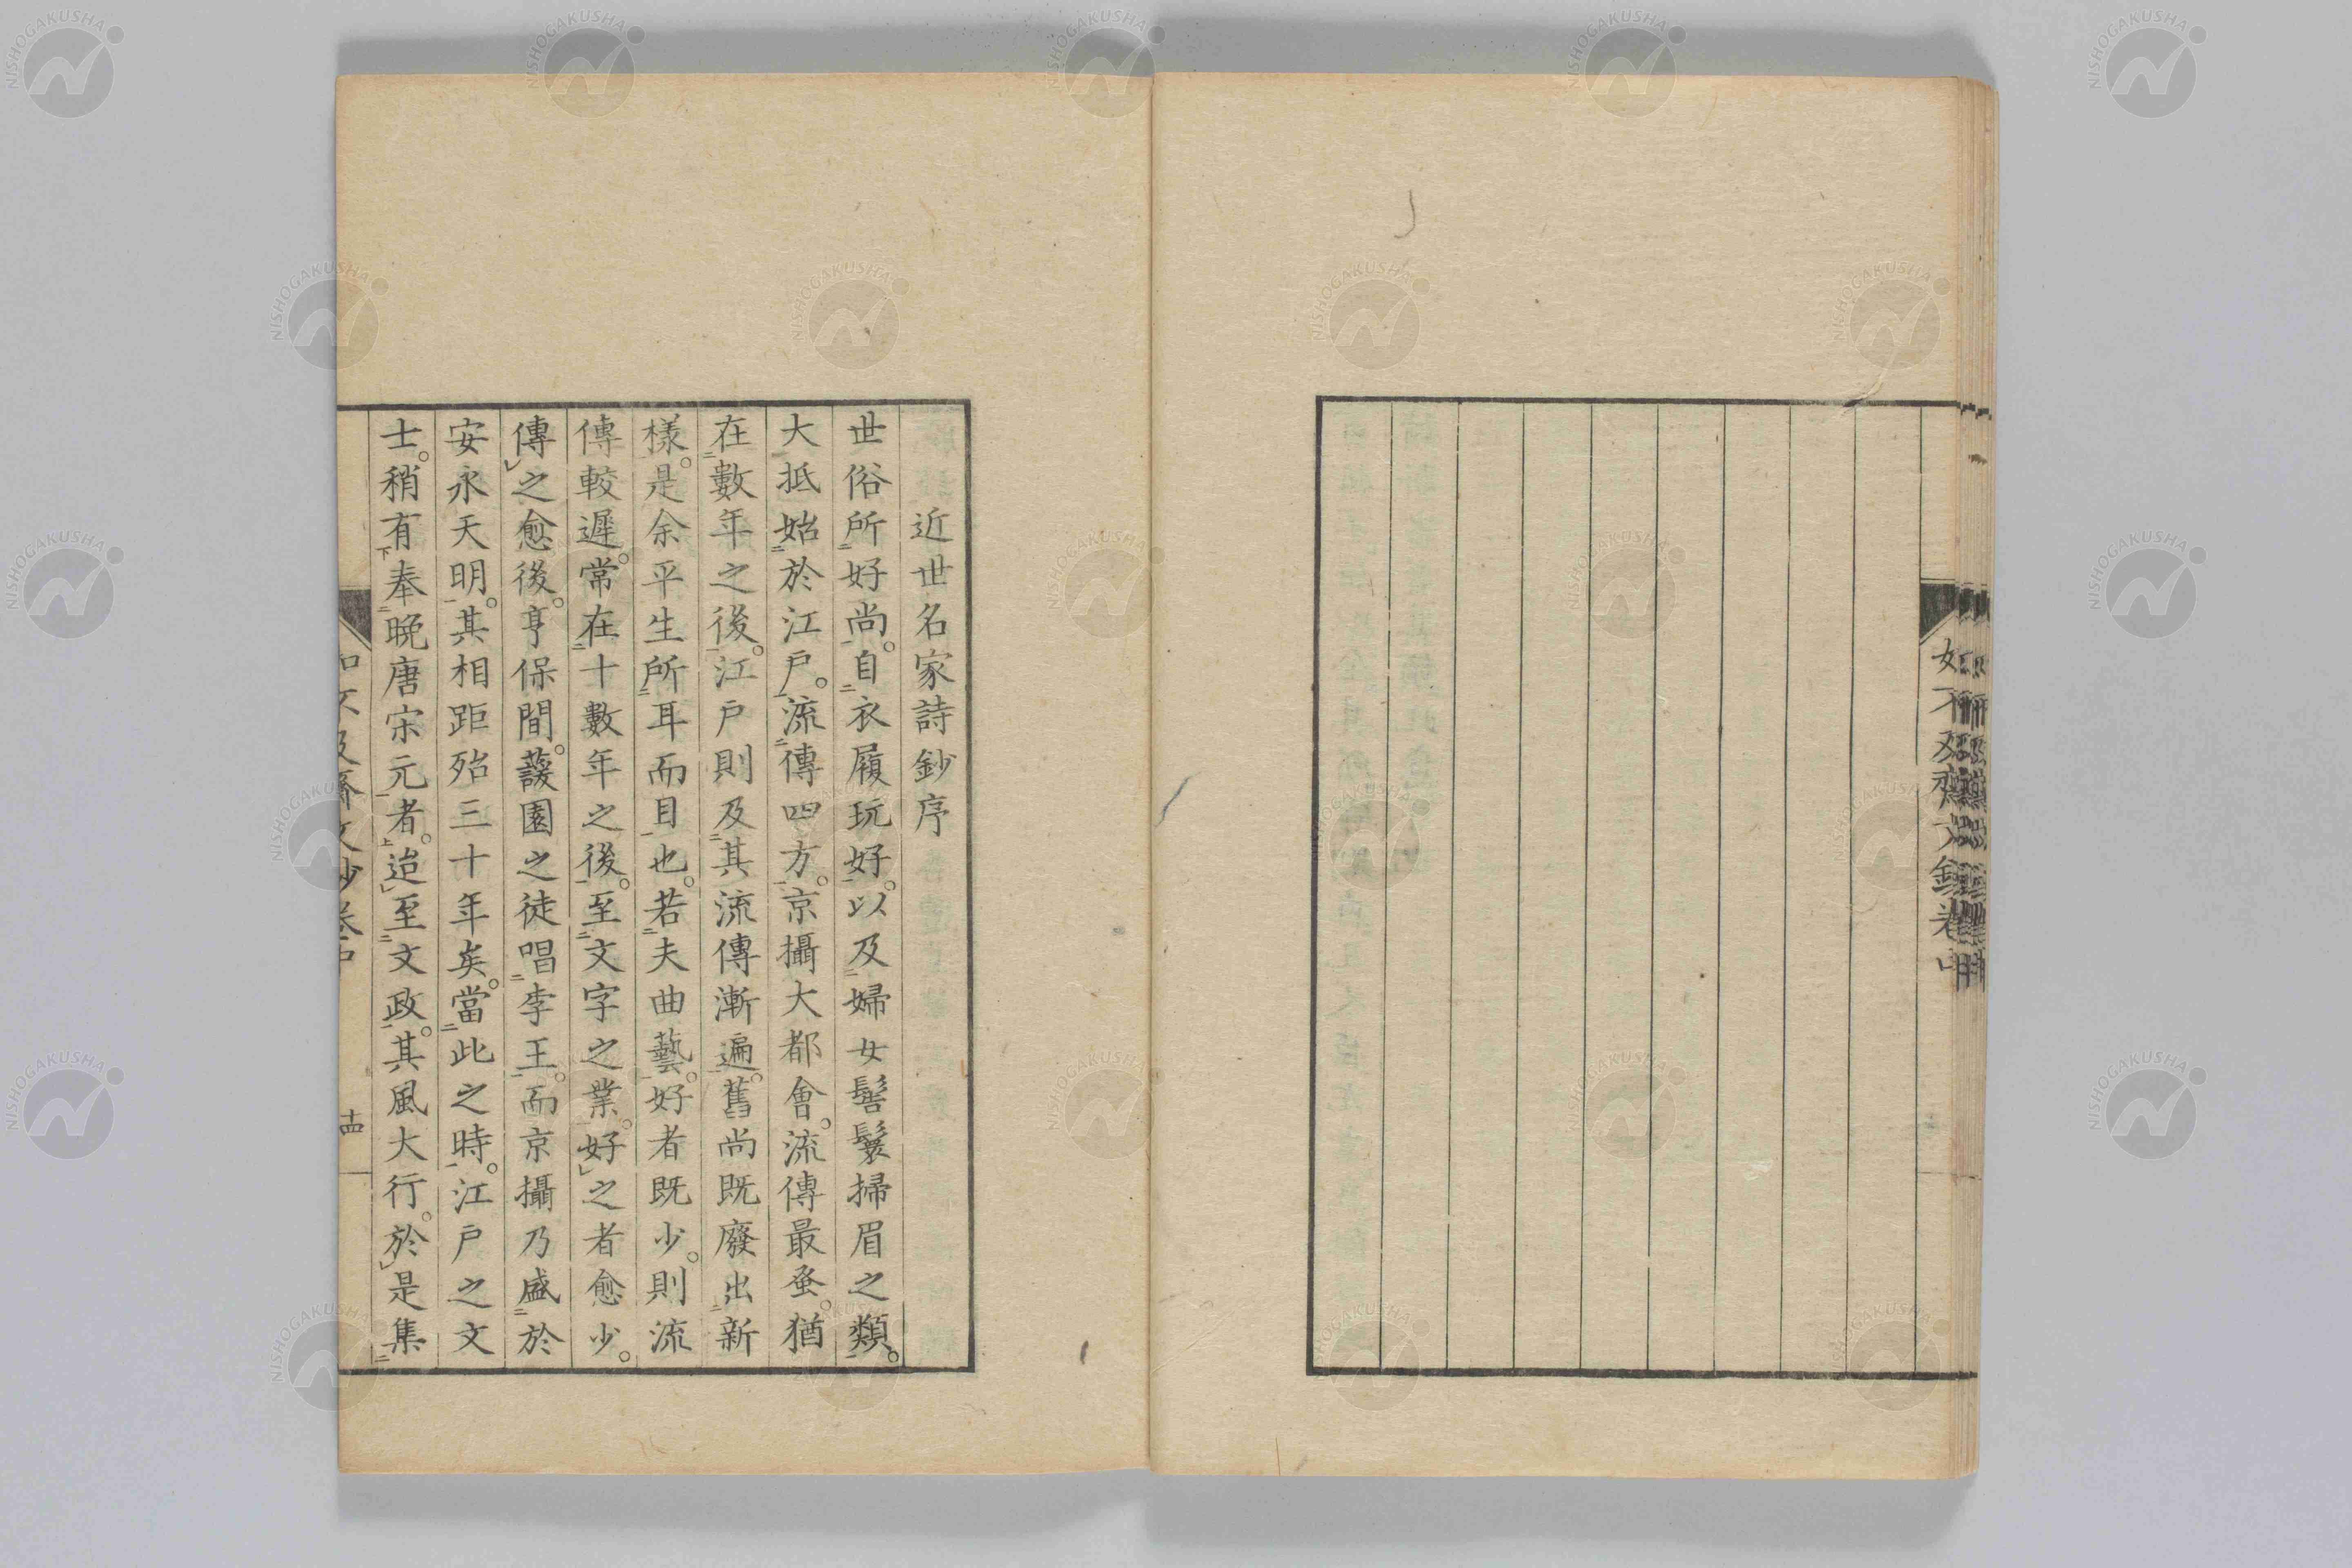 如不及齋文鈔卷中
近世名家詩鈔序
世俗所好尚。自衣履玩好。以及婦女髻鬟掃眉之類。
大抵始於江戶。流傳四方。京攝大都會。流傳最蚤。猶
在數年之後。江戶則及其流傳漸遍。舊尚既廢出新
樣。是余平生所耳而目也。若夫曲藝。好者既少。則流
傳較遲。常在十數年之後。至文字之業。好之者愈少。
傳之愈後。亨保間。蘐園之徒唱李王。而京攝乃盛於
安永天明。其相距殆三十年矣。當此之時。江戶之文
士。稍有奉晚唐宋元者。迨至文政。其風大行。於是集
如不及齋文鈔卷中
十四
NISHOGAKUSHA